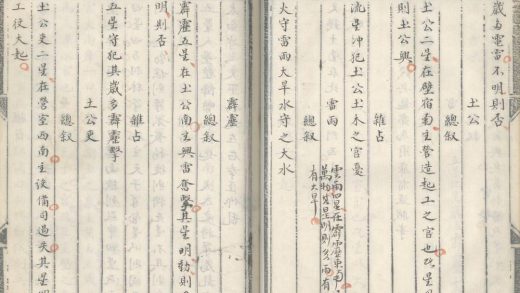 歲多電雷不明則否
土公
總叙
土公二星在壁宿南主營造起工之官也此星明
則土公興
雜占
流星冲犯土公土木之官憂
雷雨
雲雨四星在霹靂東南
萬物星明則多雨有
有大旱
總叙
火守雷雨大旱水守之大水
霹靂
總叙
霹靂五星在土公南主興雷奮擊其星明動則
明則否
雜占
五星守犯其歲多霹靂擊
土公吏
總叙
土公吏二星在營室西南主設備司過失其星明
工役大起